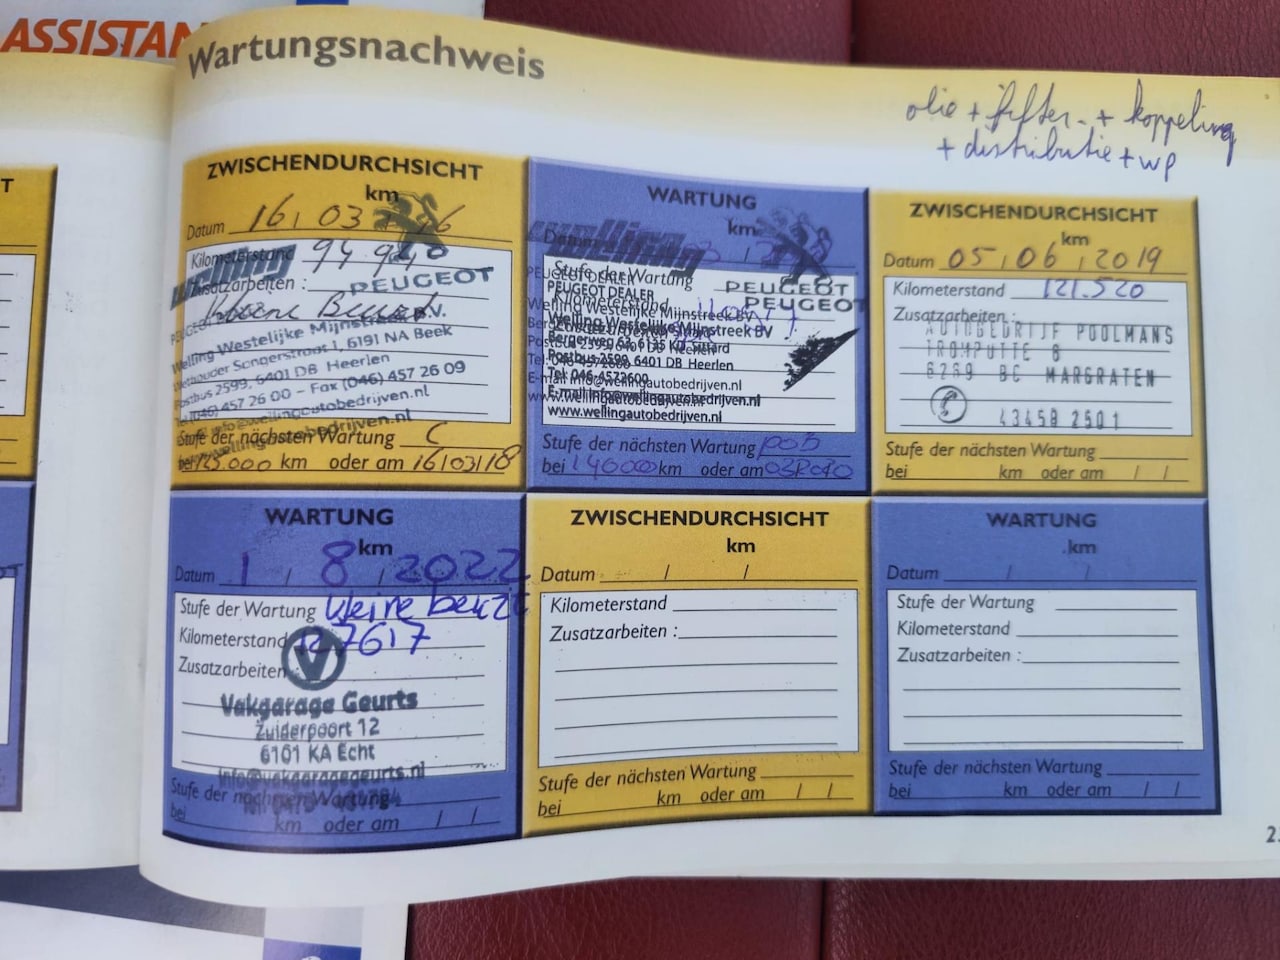 ASSISTAN
Wartungsnachweis
olie + filter + koppeling
+ distributie + wp
T
ZWISCHENDURCHSICHT
km
Datum 16 , 03
Kilometerstand 94 940
Zusatzarbeiten :
PEUGEOT
Welling Westelijke Mijnstreek B.V.
Wethouder Sangersstraat 1, 6191 NA Beek
Postbus 2599, 6401 DB Heerlen
Tel (046) 457 26 00 - Fax (046) 457 26 09
info@wellingautobedrijven.nl
wellingautobedrijven.nl
Stufe der nächsten Wartung C
bei 125.000 km oder am 16/03/18
WARTUNG
km
welling
Datum
Stufe der Wartung
PEUGEOT
PEUGEOT DEALER
PEUGEOT
Kilometerstand
Welling Westelijke Mijnstreek BV
Bergerweg 63, 6135 KD Sittard
Postbus 2599, 6401 DB Heerlen
Tel: 046-4572600
E-mail info@wellingautobedrijven.nl
www.wellingautobedrijven.nl
Stufe der nächsten Wartung
bei 140000 km oder am
ZWISCHENDURCHSICHT
km
Datum 05 / 06 / 2019
Kilometerstand 121.520
Zusatzarbeiten :
AUTOBEDRIJF POOLMANS
6269 BC MARGRATEN
43458 2501
Stufe der nächsten Wartung
bei km oder am / /
WARTUNG
km
Datum 1 / 8 / 2022
Stufe der Wartung kleine beurt
Kilometerstand 127617
Zusatzarbeiten
V
Vakgarage Geurts
Zuiderpoort 12
6101 KA Echt
info@vakgaragegeurts.nl
Stufe der nächsten Wartung
bei km oder am / /
ZWISCHENDURCHSICHT
km
Datum / /
Kilometerstand
Zusatzarbeiten :
Stufe der nächsten Wartung
bei km oder am / /
WARTUNG
km
Datum / /
Stufe der Wartung
Kilometerstand
Zusatzarbeiten :
Stufe der nächsten Wartung
bei km oder am / /